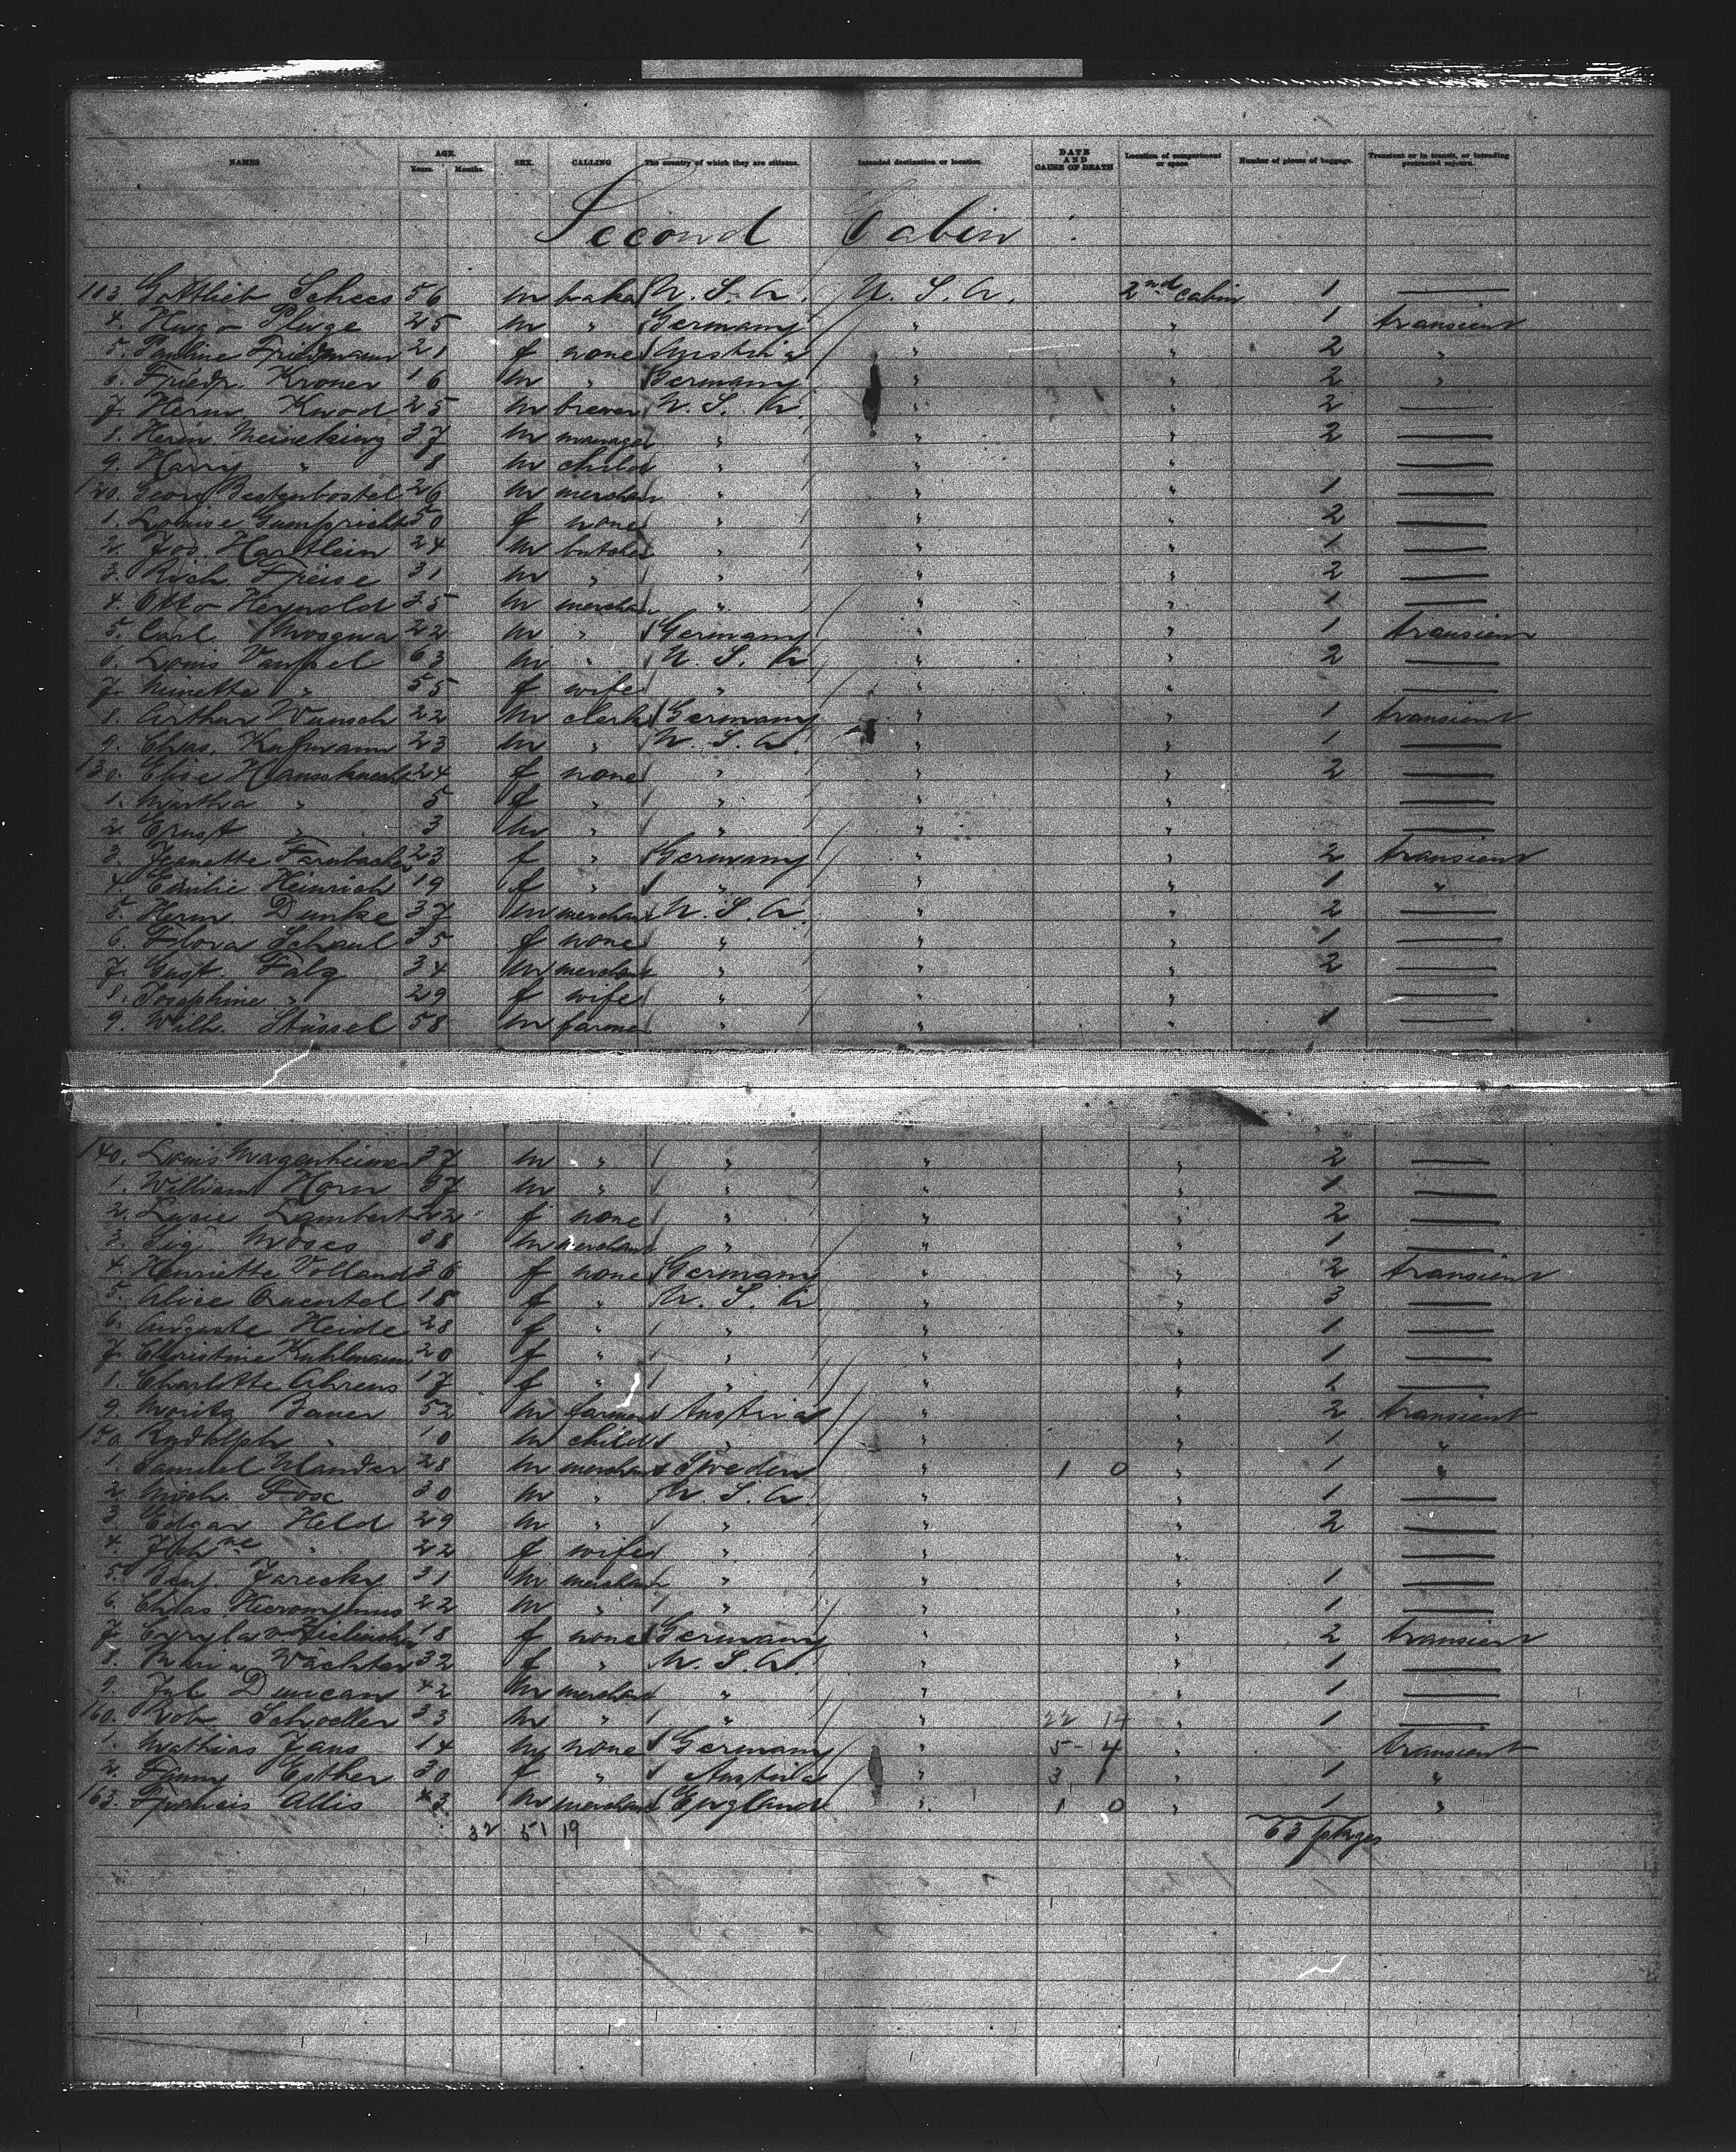 NAMES AGE. Years. Months. SEX. CALLING The country of which they are citizens. Intended destination or location. DATE AND CAUSE OF DEATH Location of compartment or space Number of pieces of baggage. Transient or in transit, or intending protracted sojourn.
Second Cabin
113 Gottlieb Schees 56 m baker U. S. A. U. S. A. 2nd cabin 1 —
4. Hugo Pluge 25 m " Germany " " 1 transient
5. Pauline Friedmann 21 f none Austria " " 2 "
6. Friedr. Kroner 16 m " Germany " " 2 "
7. Herm. Knod 25 m brewer U. S. A. " " 2 —
8. Herm Meineking 37 m manager " " " 2 —
9. Harry " 8 m child " " " —
120. Georg Bestenbostel 26 m merchan " " " 1 —
1. Louise Gumpricht 50 f none " " " 2 —
2. Jos. Hartlein 24 m butcher " " " 1 —
3. Rich. Freise 31 m " " " " 2 —
4. Otto Heynold 25 m merchan " " " 1 —
5. Carl 22 m " Germany " " 1 transient
6. Louis Vaupel 63 m " U. S. A. " " 2 —
7. Minette " 55 f wife " " " —
8. Arthur Wunsch 22 m clerk Germany " " 1 transient
9. Chas. Kufmann 23 m " U. S. A. " " 1 —
130. Elise 24 f none " " " 2 —
1. Martha " 5 f " " " " —
2. Ernst " 3 m " " " " —
3. Jeanette Farnbacher 23 f " Germany " " 2 transient
4. Emilie Heinrich 19 f " " " " 1 "
5. Herm. Dunke 37 m merchant U. S. A. " " 2 —
6. Flora Schaul 35 f none " " " 1 —
7. Gust. Falg 34 m merchant " " " 2 —
8. Josephine " 29 f wife " " " —
9. Wilh. Stüssel 58 m farmer " " " 1 —
140. Louis Magenheimer 37 m " " " " 2 —
1. William Horn m " " " " 1 —
2. Lucie Lambert 22 f none " " " 2 —
3. Sig. Moses 38 m merchant " " " 1 —
4. Henriette Volland 36 f none Germany " " 2 transient
5. Alice Quentel 18 f " U. S. A. " " 3 —
6. Auguste Heide 28 f " " " " 1 —
7. Christine Kuhlmann 20 f " " " " 1 —
1. Charlotte Ahrens 17 f " " " " 1 —
9. Moritz Bauer 52 m farmer Austria " " 2 transient
150. Rudolph " 10 m child " " " 1 "
1. Samuel Ulander 28 m merchant Sweden " 1 0 " 1 "
2. Mich. Fox 30 m " U. S. A. " " 1 —
3 Edgar Held 29 m " " " " 2 —
4. " 22 f wife " " " —
5. Benj. Jarecky 31 m merchant " " " 1 —
6. Chas. Hieronymus 22 m " " " " 1 —
7. Cyryla v. 18 f none Germany " " 2 transient
8. Maria Wächter 32 f " U. S. A. " " 1 —
9. Duncan 42 m merchant " " " 1 —
160. Rob. Schoeller 33 m " " " 22 14 " 1 —
1. Mathias Jans 14 m none Germany " 5 - 4 " transient
2. Fanny Esther 30 f " Austria " 3 1 " 1 "
163. Francis Allis 43 m merchant England " 1 0 " 1 "
32 51 19 63 pkges